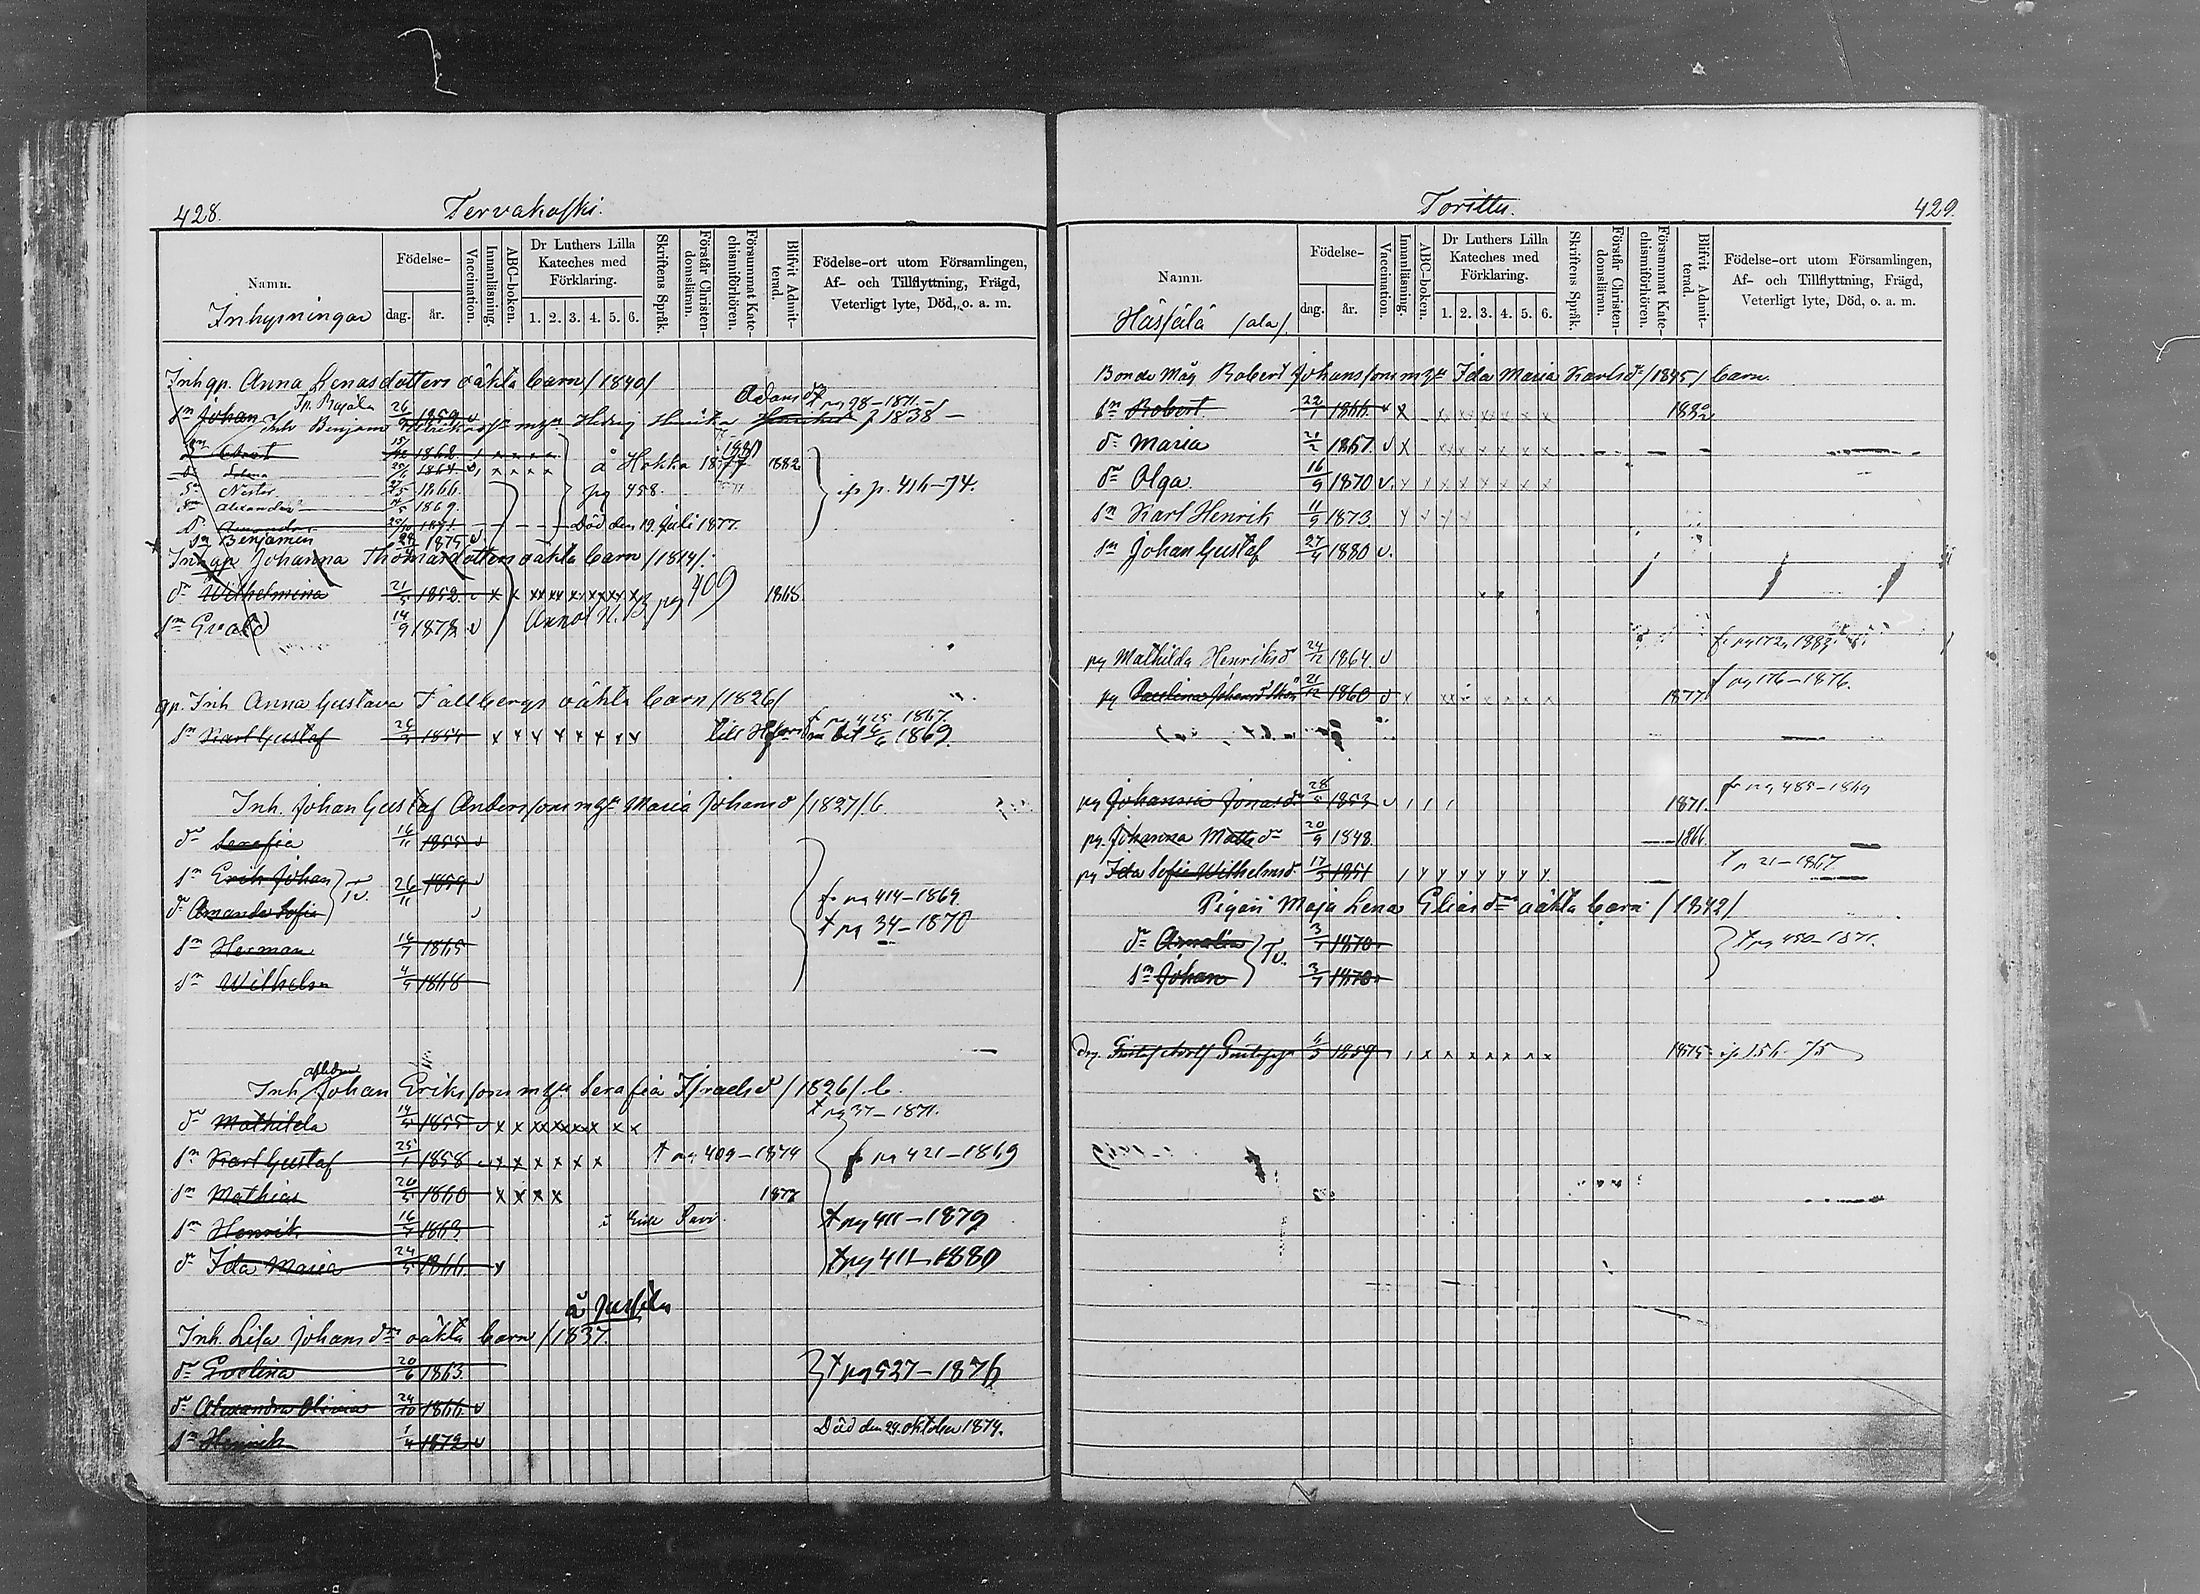 428.
Tervakoski.
Namn.
Inhysningar
Födelse-
dag.
år.
Vaccination.
Innanläsning.
ABC-boken.
Dr Luthers Lilla
Kateches med
Förklaring.
1. 2. 3. 4. 5. 6.
Skriftens Språk.
Förstår Christen-
domsläran.
Försummat Kate-
chismiförhören.
Blifvit Admit-
terad.
Födelse-ort utom Församlingen,
Af- och Tillflyttning, Frägd,
Veterligt lyte, Död, o. a. m.
Inh gp. Anna Lenasdotters oäkta barn /1840/
Adamsdr
sn Johan 26 1859 v pg 98-1871.
Inh Benjamin mhu Hedvig Henrika 1838
1862
1864 å Hokka 1877 1882
sn Nestor 1866. pg 458. ip p. 416-74.
sn Alexander 1869.
dr Amanda 1871 Död den 19 Juli 1877.
sn Benjamin 1875 v
Inh gp Johanna Thomasdotters oäkta barn /1814/.
dr Wilhelmina 21/5 1852 v x x xx x x xx x x 1868
sn Evald 14/9 1872 v Annot N. B pag 409
gp. Inh Anna Gustava Fallbergs oäkta barn /1826/
f pg 425 1867.
sn Karl Gustaf 26/3 1854 x x y y x x y y till bet 4/6 1869.
Inh. Johan Gustaf Anderssons mhu Maria Johansd /1827/ b.
dr Serafia 16/11 1855 v
sn Erik Johan } Tv. 26/11 1859 v
dr Amanda Sofia v
fr pg 414-1869
t pg 34-1870
sn Herman 16/7 1865
sn Wilhelm 4/9 1868
afledne
Inh Johan Erikssons mhu Serafia Israelsd /1826/. b.
t pg 37-1871.
dr Mathilda 14/5 1855 v x x xx xx xx x x
sn Karl Gustaf 25/1 1858 v x x x x x x t pg 409-1874 fr pg 421-1869
sn Mathias 20/5 1860 x x x x 1877
sn Henrik 16/7 1863. t pg 411-1879
dr Ida Maria 24/5 1866. v t pg 411-1880
å Jussila
Inh. Lisa Johansdrs oäkta barn /1837.
dr Evelina 20/6 1863. } t pg 527-1876
dr Alexandra Olivia 24/10 1866 v
sn Henrik 1/4 1872 v Död den 29. oktober 1874.
429.
Torittu.
Namn.
Hässälä /ala/.
Födelse-
dag.
år.
Vaccination.
Innanläsning.
ABC-boken.
Dr Luthers Lilla
Kateches med
Förklaring.
1. 2. 3. 4. 5. 6.
Skriftens Språk.
Förstår Christen-
domsläran.
Försummat Kate-
chismiförhören.
Blifvit Admit-
terad.
Födelse-ort utom Församlingen,
Af- och Tillflyttning, Frägd,
Veterligt lyte, Död, o. a. m.
Bonde Måg Robert Johanssons mhu Ida Maria Karlsdr /1845/ barn.
sn Robert 22/1 1866 v x x x x x x x 1882
dr Maria 21/2 1867 v x x x x x x x
dr Olga 16/9 1870 v. x x x x x x x x
sn Karl Henrik 11/9 1873 y y y y
sn Johan Gustaf 27/4 1880 v.
fr pg 172, 1883.
pg Mathilda Henriksdr 24/12 1864 v
f pg 176-1876.
pg Paulina 21/12 1860 v x xx x x x x x 1877
fr pg 485-1869
pg Johanna Jonasdr 28/5 1853 v / / / 1871.
pg. Johanna Mattsdr 20/9 1848. 1866
t p 21-1867
pg Ida Sofia Wilhelmsd. 17/3 1851 / y y y y y y y
Pigan Maja Lena Eliasdrs oäkta barn /1842/
dr Amalia } Tv. 3/7 1870 } t pg 450-1871.
sn Johan 3/7 1870
drg. Gustaf Adolf 6/3 1859 / x x x x x x x 1875 ip 156. 75